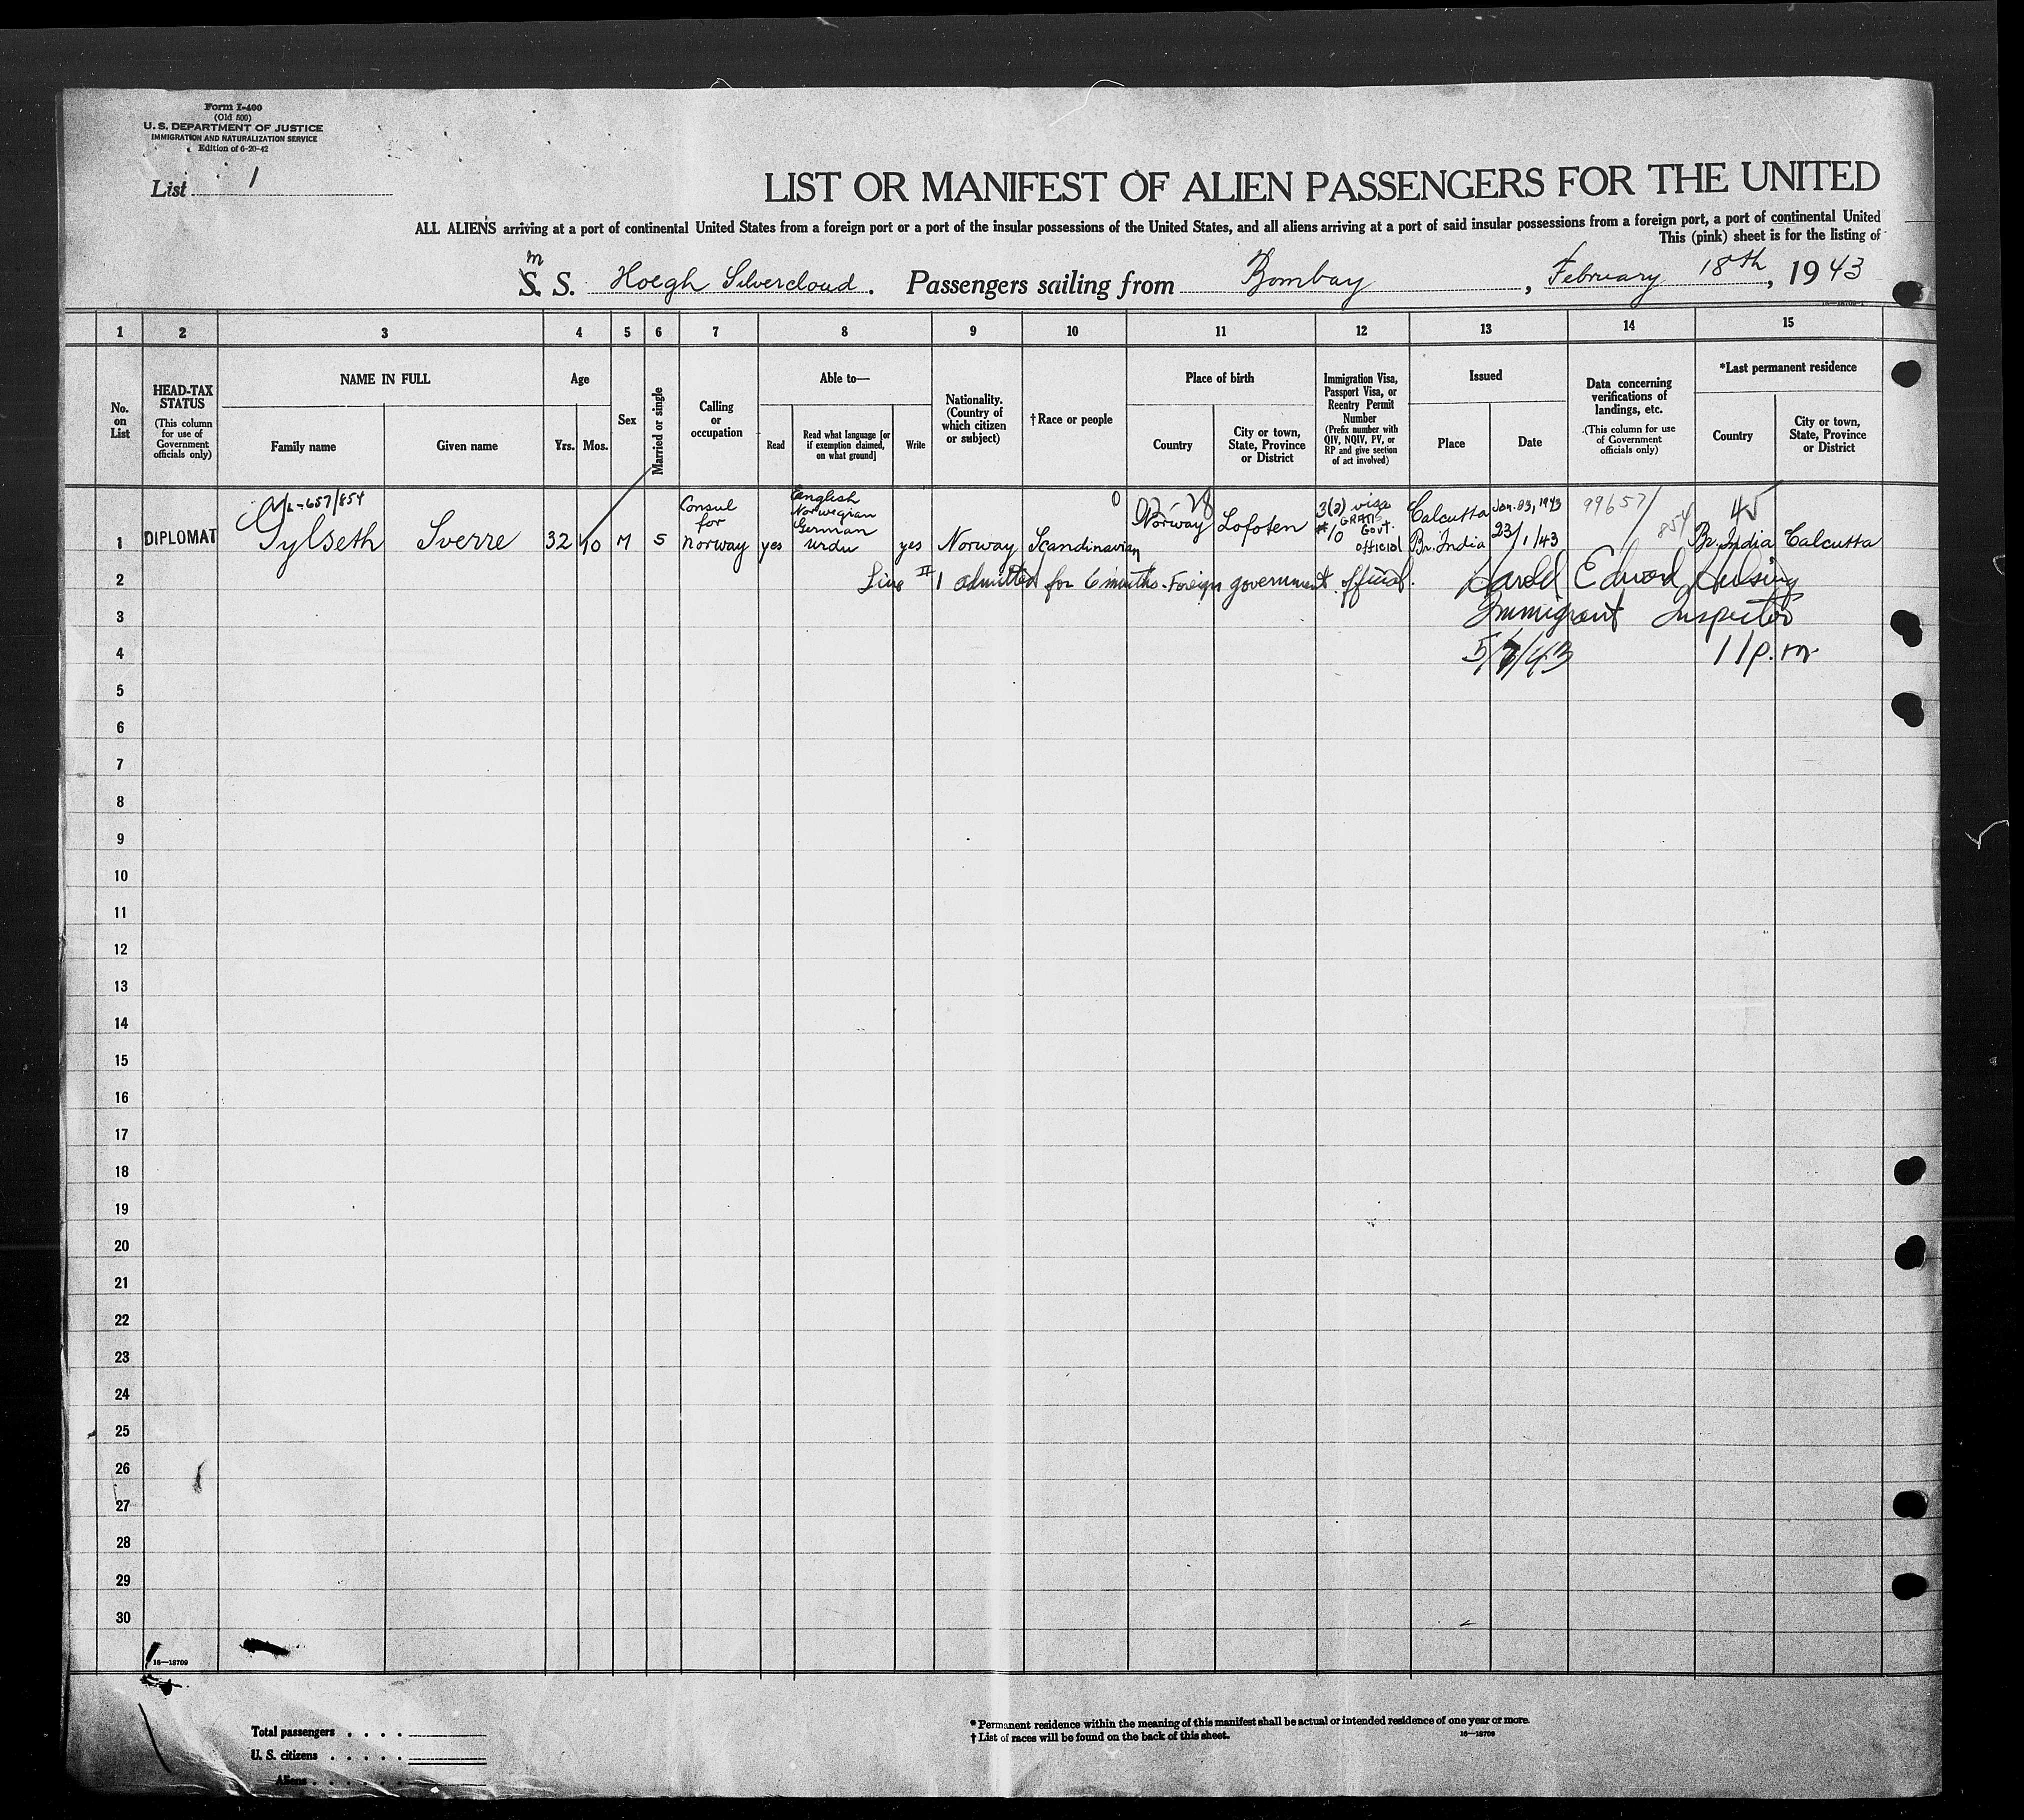 Form I-400
(Old 500)
U. S. DEPARTMENT OF JUSTICE
IMMIGRATION AND NATURALIZATION SERVICE
Edition of 6-20-42
List 1
LIST OR MANIFEST OF ALIEN PASSENGERS FOR THE UNITED
ALL ALIENS arriving at a port of continental United States from a foreign port or a port of the insular possessions of the United States, and all aliens arriving at a port of said insular possessions from a foreign port, a port of continental United
This (pink) sheet is for the listing of
m
S. S. Hoegh Silvercloud. Passengers sailing from Bombay, February 18th, 1943
1 2 3 4 5 6 7 8 9 10 11 12 13 14 15
No. on List
HEAD-TAX STATUS
(This column for use of Government officials only)
NAME IN FULL
Family name
Given name
Age
Yrs. Mos.
Sex
Married or single
Calling or occupation
Able to—
Read
Read what language [or if exemption claimed, on what ground]
Write
Nationality. (Country of which citizen or subject)
† Race or people
Place of birth
Country
City or town, State, Province or District
Immigration Visa, Passport Visa, or Reentry Permit Number
(Prefix number with QIV, NQIV, PV, or RP and give section of act involved)
Issued
Place
Date
Data concerning verifications of landings, etc.
(This column for use of Government officials only)
*Last permanent residence
Country
City or town, State, Province or District
1 DIPLOMAT Gylseth Sverre 32 10 M S Consul for Norway yes English Norwegian German Urdu yes Norway Scandinavian Norway Lofoten 3(2) visa #10 GRATIS Govt. official Calcutta Br. India Jan. 23, 1943 23/1/43 99657/854 Br. India Calcutta
2 Line # 1 admitted for 6 months. Foreign government official. Harold Edward
3 Immigrant Inspector
4 11 p.m.
5
6
7
8
9
10
11
12
13
14
15
16
17
18
19
20
21
22
23
24
25
26
27
28
29
30
16—18709
Total passengers . . . .
U. S. citizens . . . . .
Aliens . . . . . .
* Permanent residence within the meaning of this manifest shall be actual or intended residence of one year or more.
† List of races will be found on the back of this sheet.
16—18709